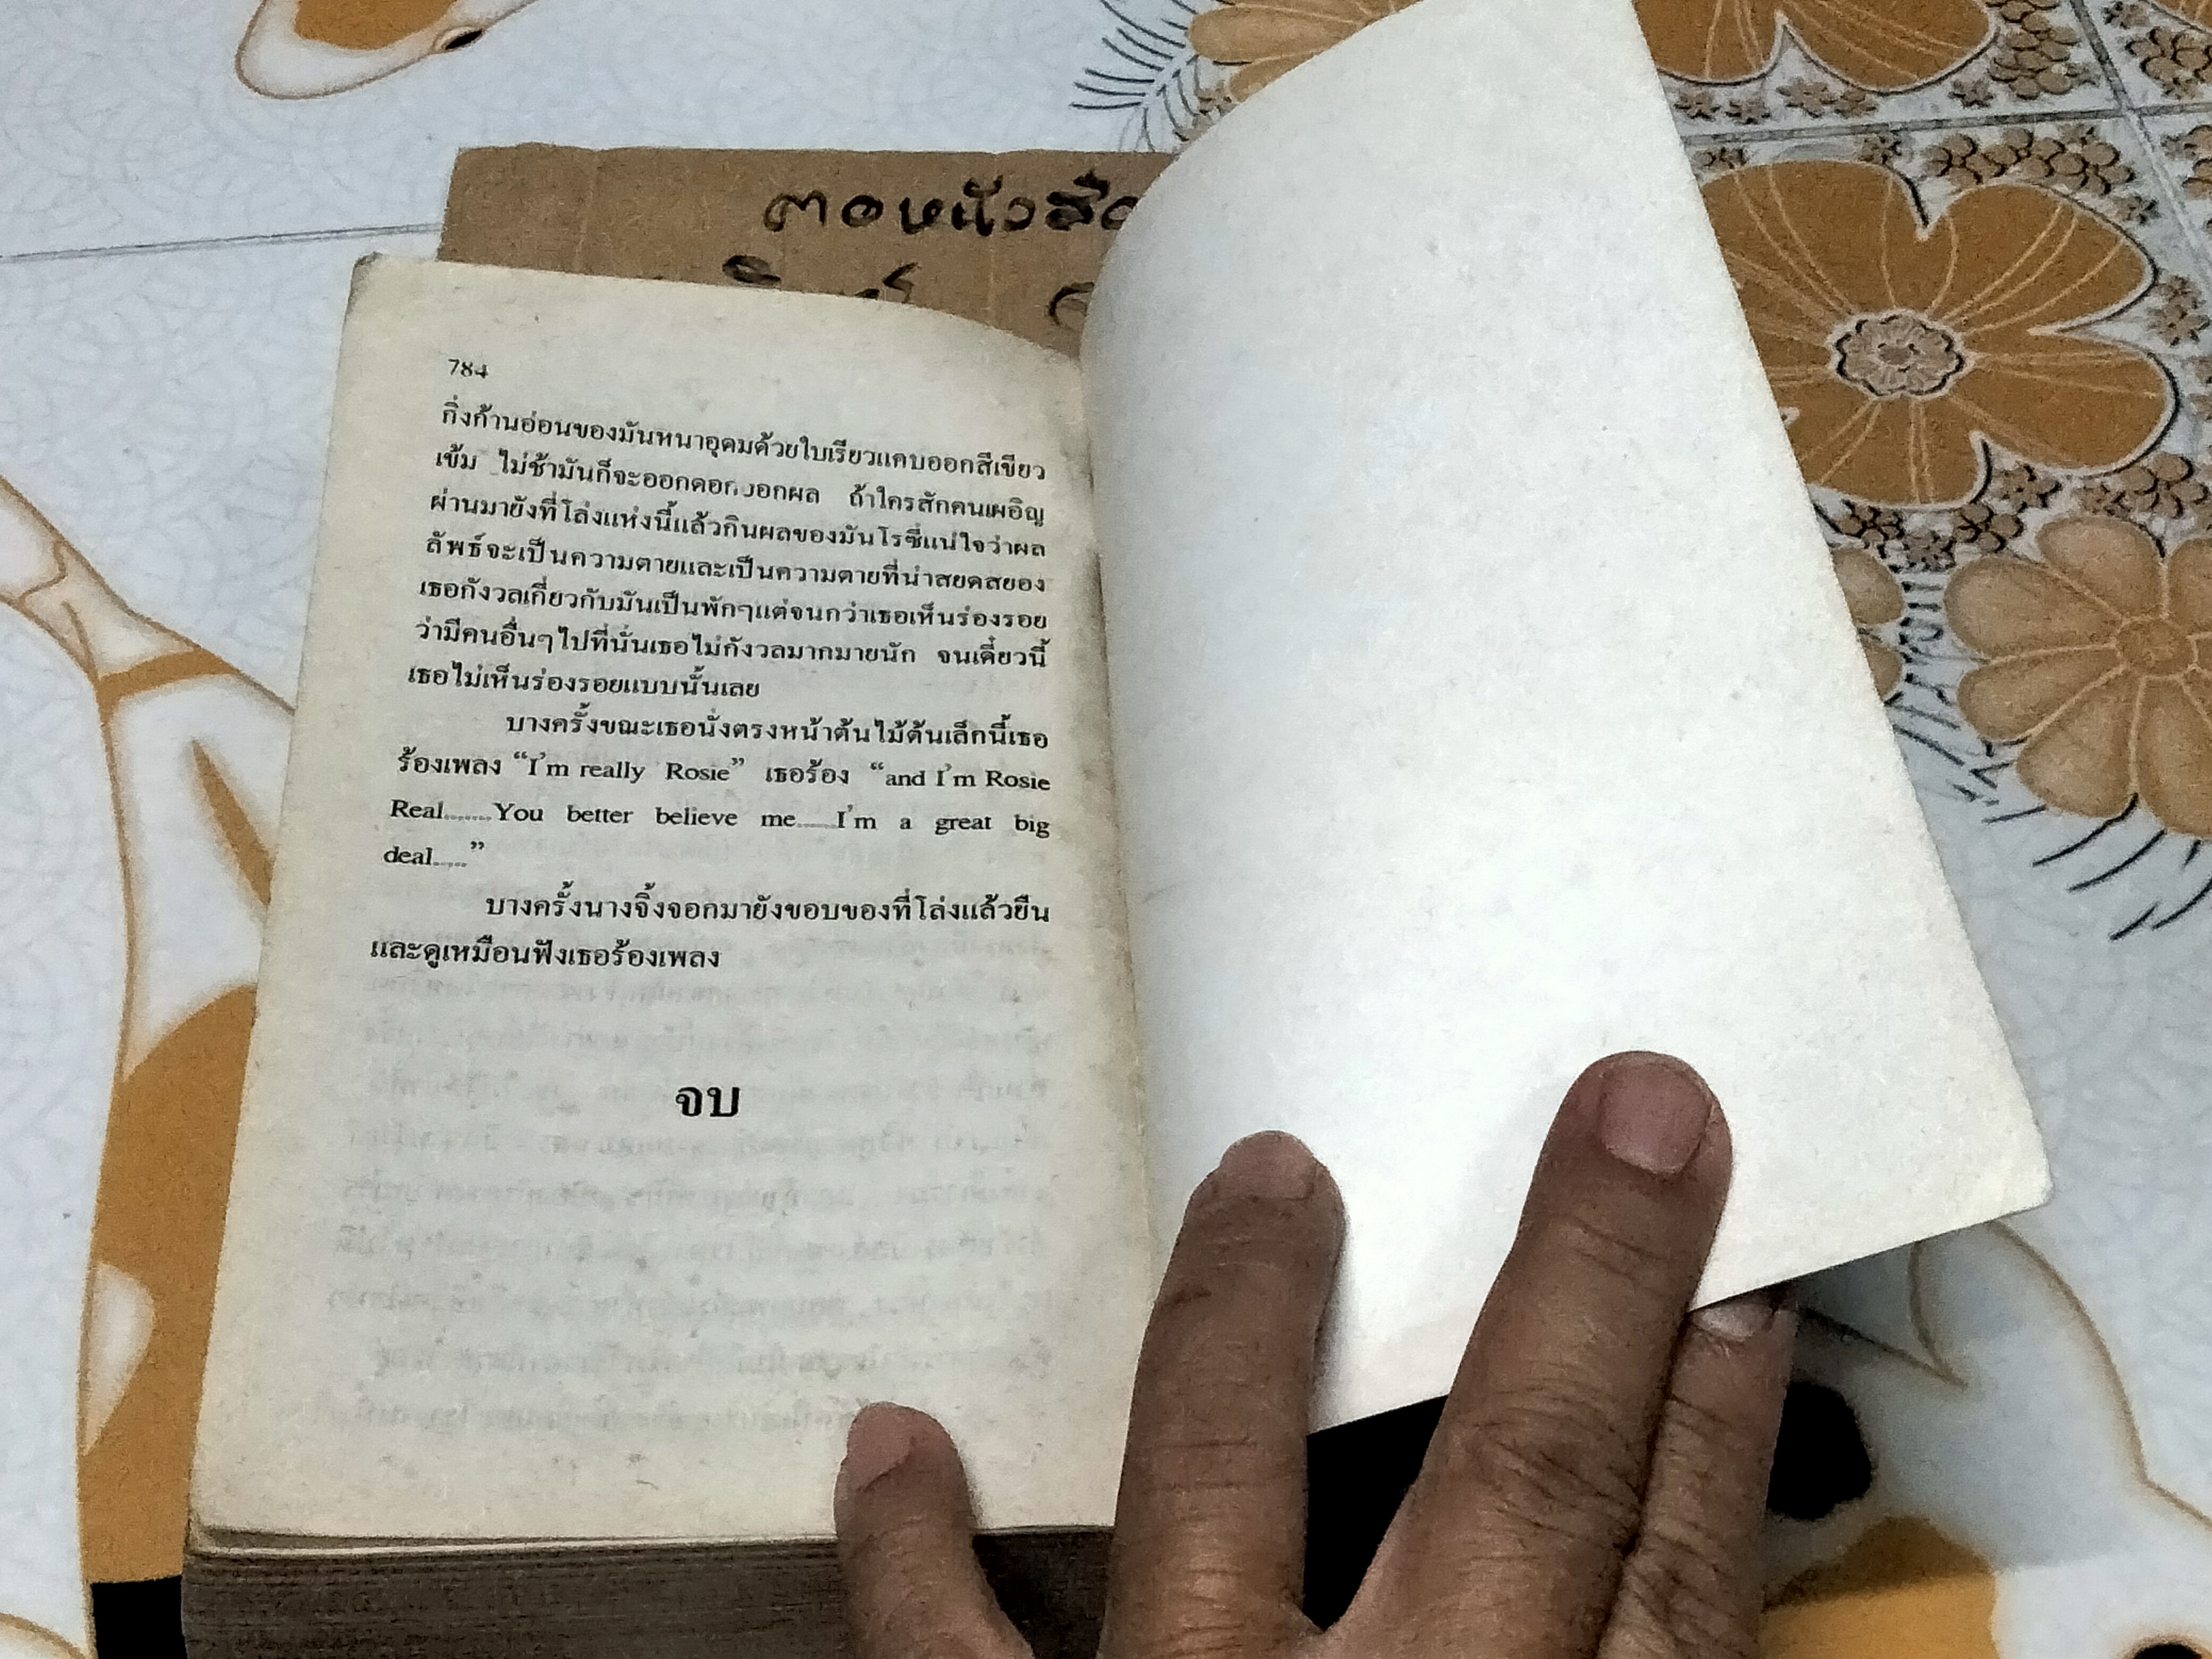 ตอหนังสือ
784
กิ่งก้านอ่อนของมันหนาอุดมด้วยใบเรียวแคบออกสีเขียว
เข้ม ไม่ช้ามันก็จะออกดอกออกผล ถ้าใครสักคนเผอิญ
ผ่านมายังที่โล่งแห่งนี้แล้วกินผลของมันโรซี่แน่ใจว่าผล
ลัพธ์จะเป็นความตายและเป็นความตายที่น่าสยดสยอง
เธอกังวลเกี่ยวกับมันเป็นพักๆแต่จนกว่าเธอเห็นร่องรอย
ว่ามีคนอื่นๆไปที่นั่นเธอไม่กังวลมากมายนัก จนเดี๋ยวนี้
เธอไม่เห็นร่องรอยแบบนั้นเลย
บางครั้งขณะเธอนั่งตรงหน้าต้นไม้ต้นเล็กนี้เธอ
ร้องเพลง “I'm really Rosie” เธอร้อง “and I'm Rosie
Real........You better believe me......I'm a great big
deal......”
บางครั้งนางจิ้งจอกมายังขอบของที่โล่งแล้วยืน
และดูเหมือนฟังเธอร้องเพลง
จบ